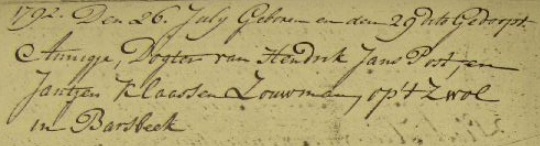 1792. Den 26. July Geboren en den 29 dito Gedoopt.
Annigje, Dogter van Hendrik Jans Post, en
Jantjen Klaassen Louwman, op't Zwol
in Barsbeek